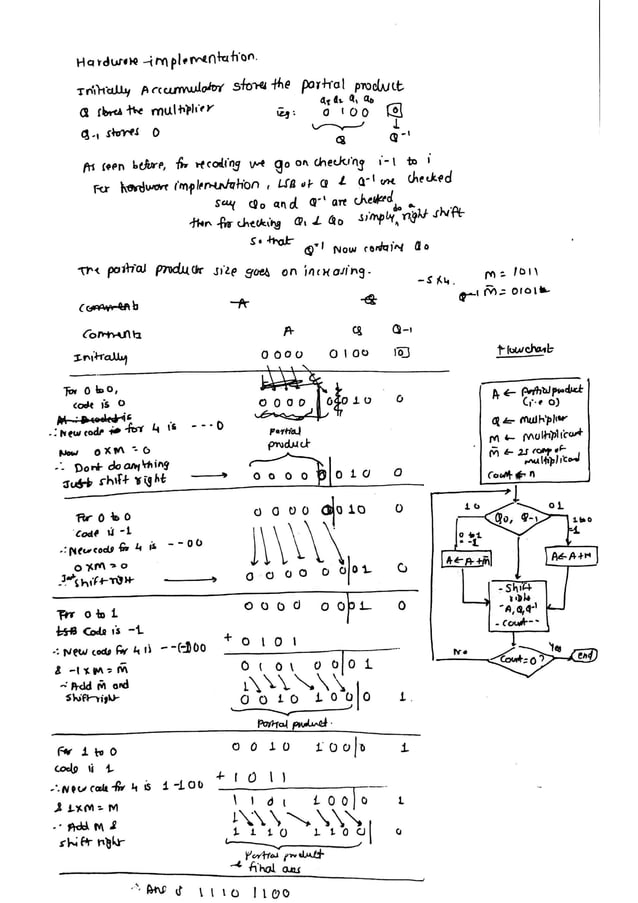 Hardware implementation.
Initially Accumulator stores the partial product
Q stores the multiplier
q3 q2 q1 q0
Eg: 0 1 0 0 0
Q-1 stores 0
Q Q-1
As seen before, for recoding we go on checking i-1 to i
For hardware implementation, LSB of Q & Q-1 are checked
say Q0 and Q-1 are checked
then for checking Q1 & Q0 simply do a right shift
So that Q-1 Now contains Q0
The partial product size goes on increasing.
-5 x 4. M = 1011
M̄ = 0101
Comments A Q
Comments A Q Q-1
Initially 0000 0100 0
For 0 to 0,
code is 0
0 0 0 0 0 0 1 0 0
∴ New code for 4 is - - - 0
Now 0 x M = 0
Partial
product
∴ Dont do anything
Just shift right → 0 0 0 0 0 0 1 0 0
For 0 to 0 0 0 0 0 0 0 1 0 0
code is -1
∴ New code for 4 is - - 0 0
0 x M = 0
Just shift right → 0 0 0 0 0 0 0 1 0
For 0 to 1 0 0 0 0 0 0 0 1 0
LSB Code is -1
+ 0 1 0 1
∴ New code for 4 is - -(-1)00
& -1 x M = M̄
0 1 0 1 0 0 0 1
∴ Add M̄ and
shift right
0 0 1 0 1 0 0 0 1
Partial product.
For 1 to 0 0 0 1 0 1 0 0 0 1
code is 1
+ 1 0 1 1
∴ New code for 4 is 1 -1 0 0
& 1 x M = M
1 1 0 1 1 0 0 0 1
∴ Add M &
shift right
1 1 1 0 1 1 0 0 0
Partial product
& final ans
∴ Ans is 1110 1100
Flowchart
A ← Partial product
(i.e 0)
Q ← multiplier
M ← Multiplicant
M̄ ← 2s comp of
multiplicand
Count ← n
10 Q0, Q-1 01
0 to 1
= -1
1 to 0
= 1
A ← A + M̄
A ← A + M
- Shift
right
A, Q, Q-1
- count--
No Count = 0? Yes end